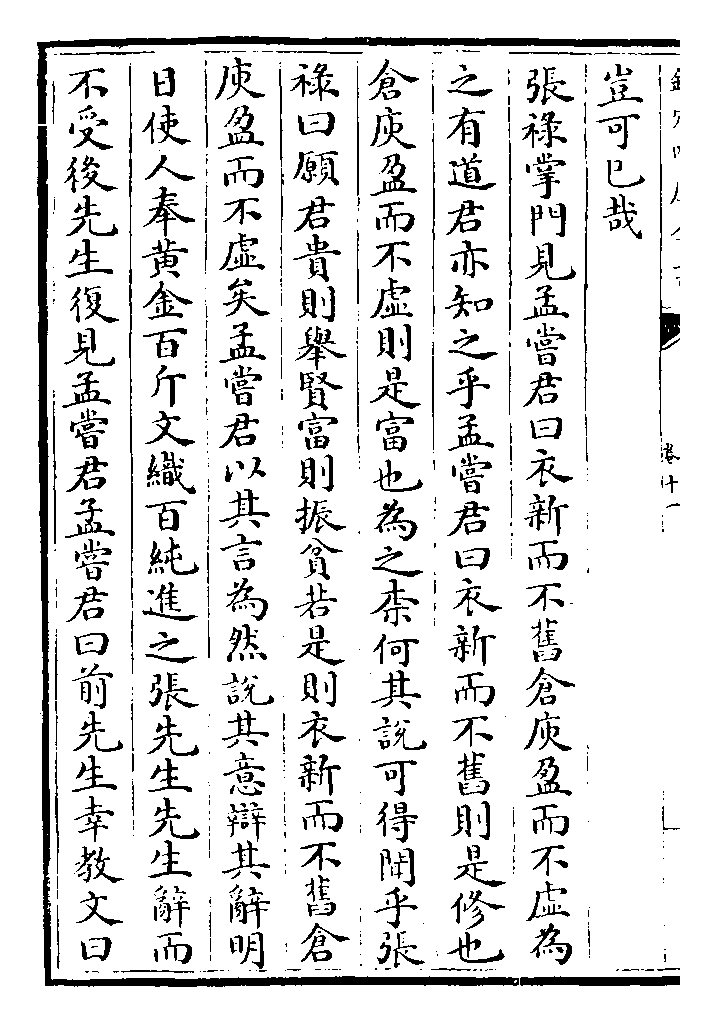 豈可已哉
張祿掌門見孟嘗君曰衣新而不舊倉庾盈而不虛為
之有道君亦知之乎孟嘗君曰衣新而不舊則是修也
倉庾盈而不虛則是富也為之柰何其說可得聞乎張
祿曰願君貴則舉賢富則振貧若是則衣新而不舊倉
庾盈而不虛矣孟嘗君以其言為然說其意辯其辭明
日使人奉黄金百斤文織百純進之張先生先生辭而
不受後先生復見孟嘗君孟嘗君曰前先生幸教文曰
卷十一